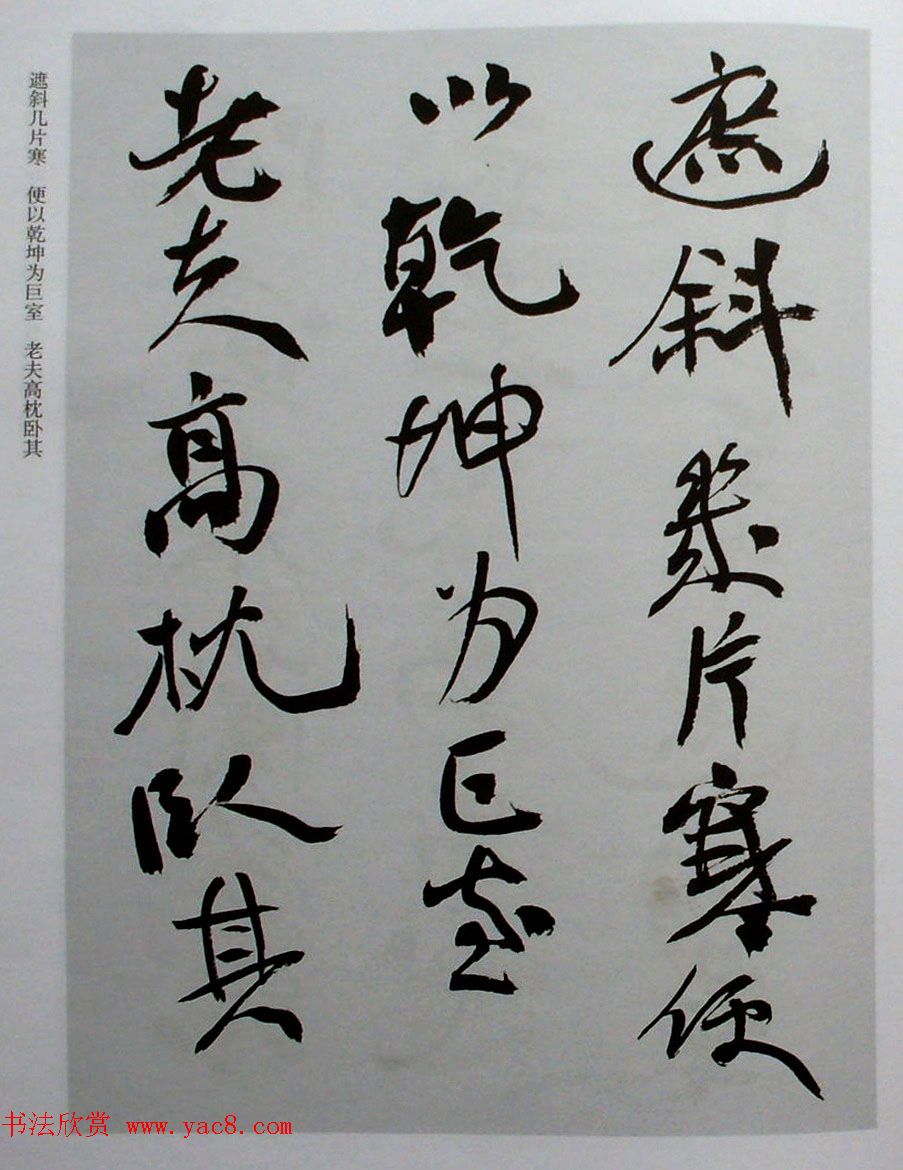 遮斜幾片寒便
以乾坤为巨室
老夫高枕卧其
遮斜几片寒　便以乾坤为巨室　老夫高枕卧其
书法欣赏 www.yac8.com